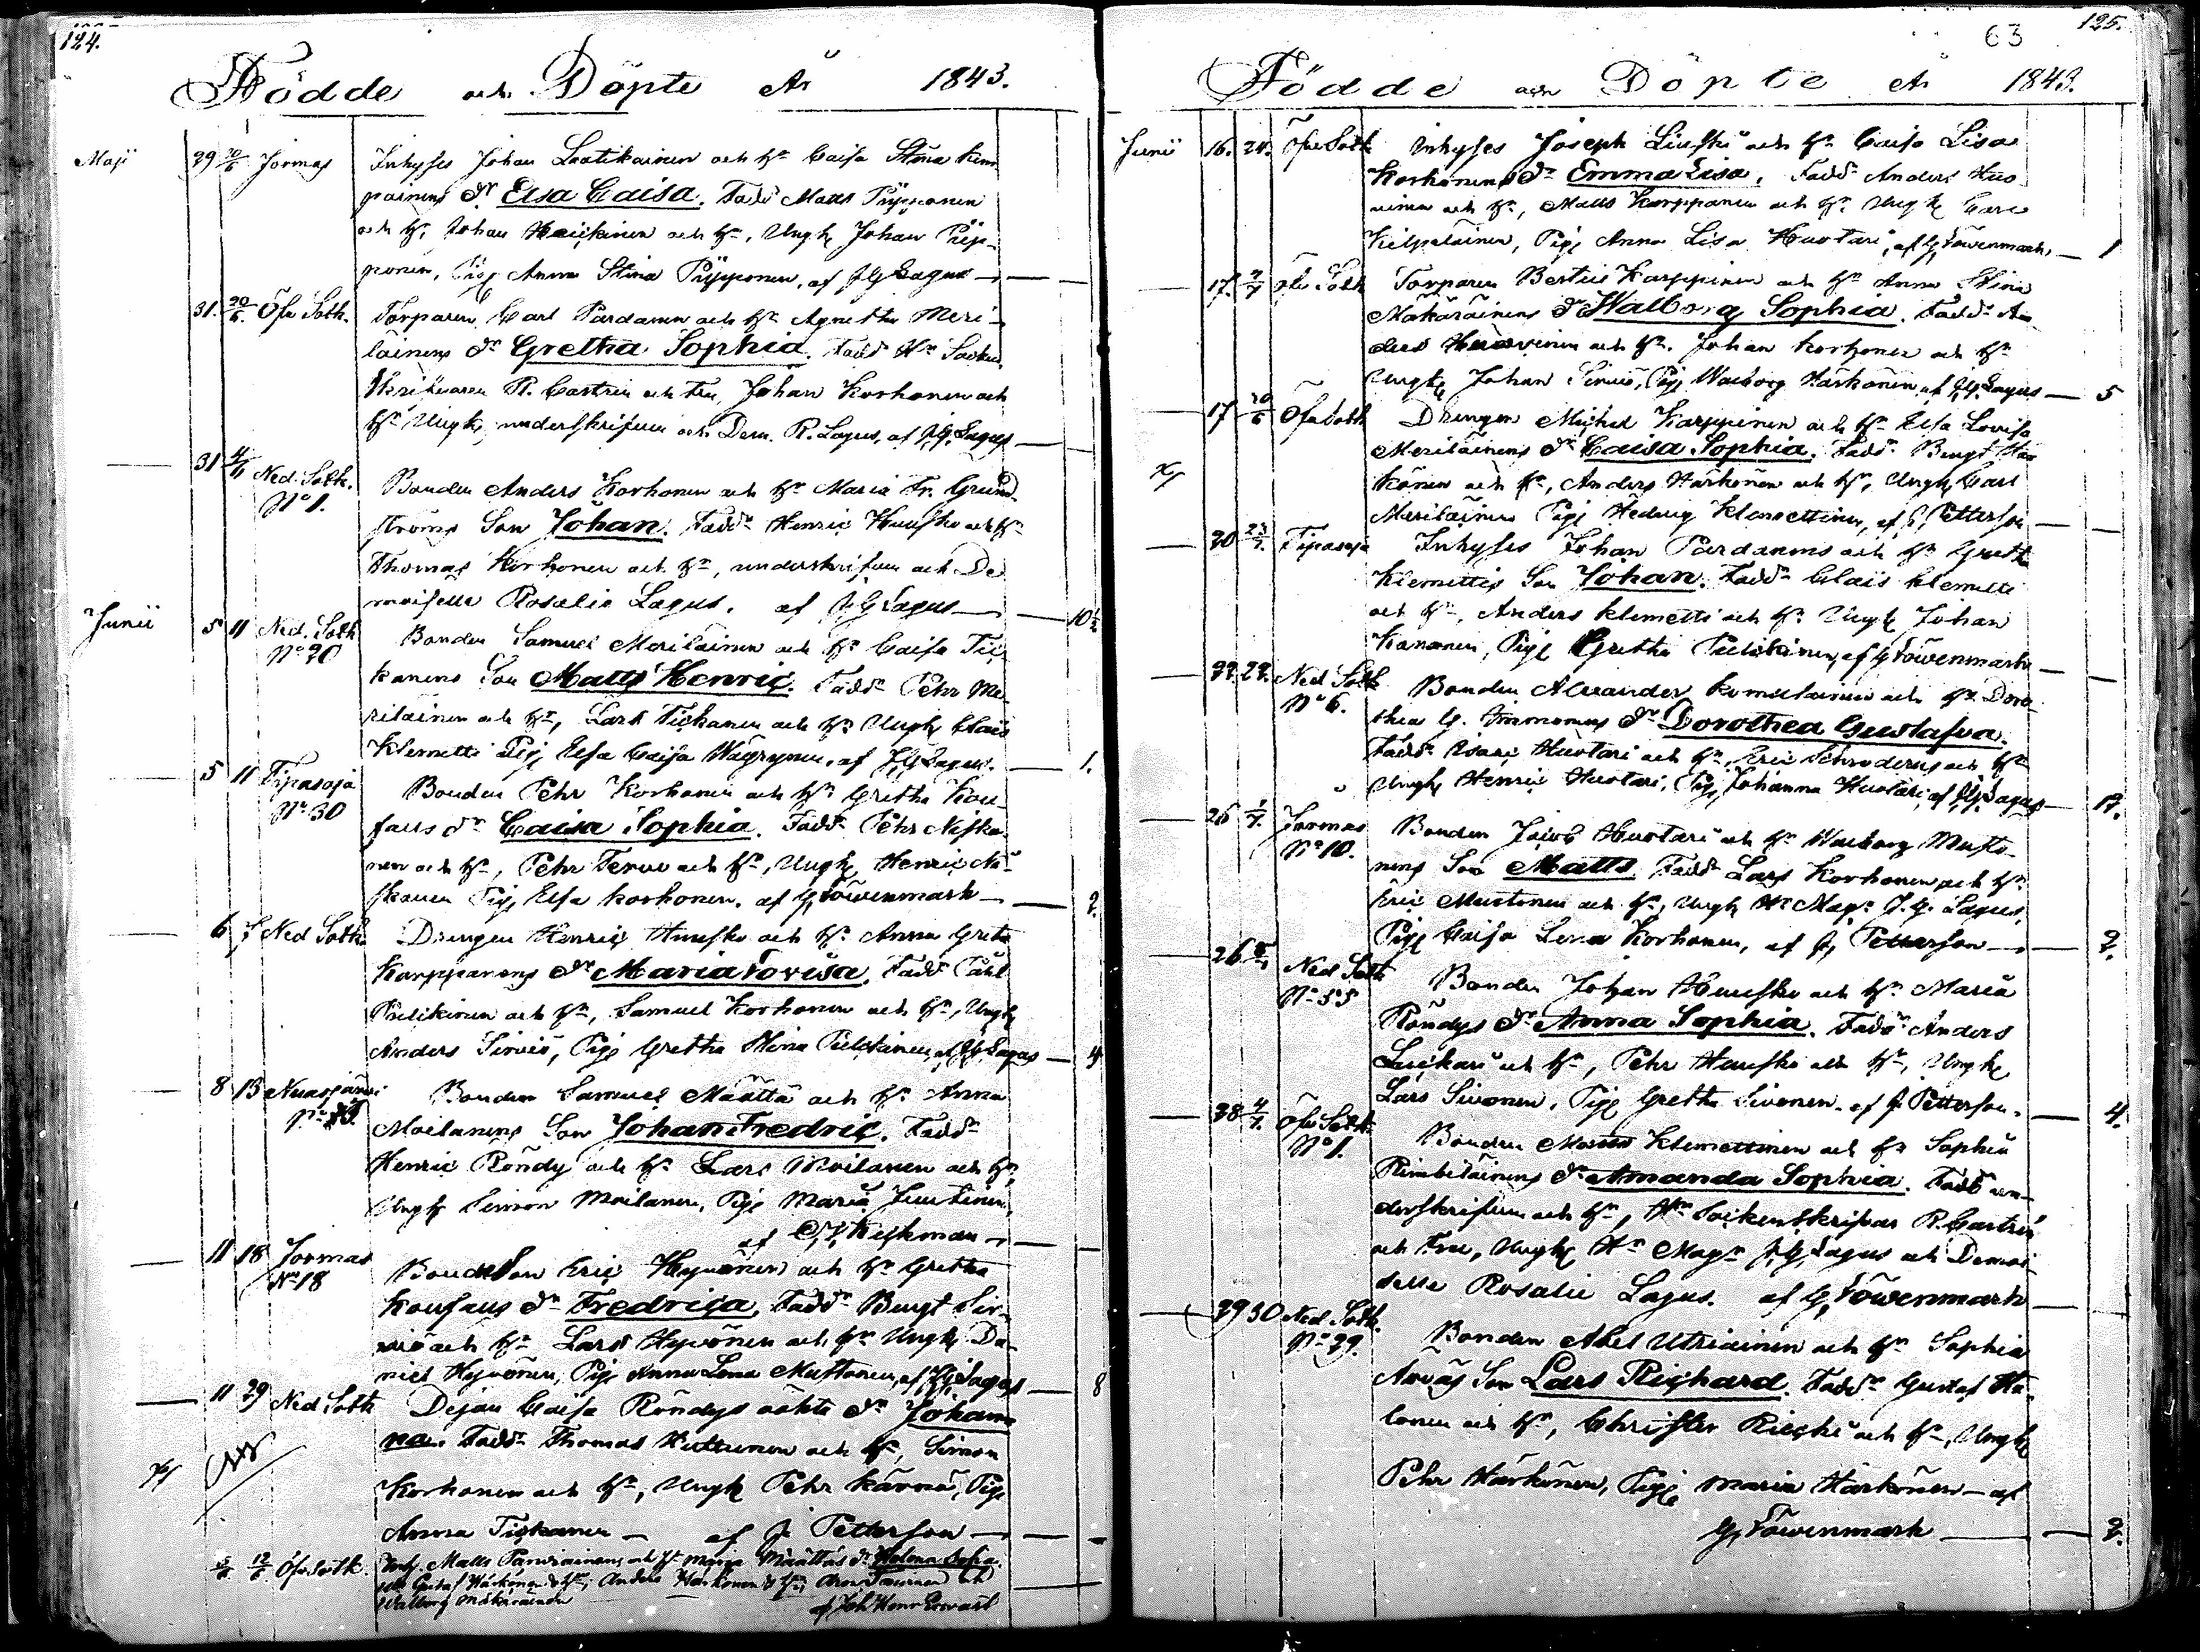 124.
Födde och Döpte År 1843.
Maji 29 20/6 Jormas Inhyses Johan Laatikainen och H:u Caisa Stina Kem
painens D:r Elsa Caisa. Fadd: Matts Piipponen
och H:u Johan Heickinen och H:u, Ungk. Johan Piip-
ponen, Pig. Anna Stina Piipponen, af J G Lagus
31. 20/6. Öfv. Sotk. Torparen Carl Pardanen och H:u Agnetha Meri-
läinens D:r Gretha Sophia. Fadd: H:r Socken
Skrifvaren R. Castrén och Fru, Johan Korhonen och
H:u Ungk. underskrifven och Dem. R. Lagus, af J.G. Lagus
31 4/6 Ned. Sotk. N:o 1. Bonden Anders Korhonen och H:u Maria Fr. Grund
ströms Son Johan. Fadd: Henric Huusko och H:u
Thomas Korhonen och H:u, underskrifven och De
moiselle Rosalie Lagus. af J G Lagus 10 1/2
Junii 5 11 Ned. Sotk N:o 20 Bonden Samuel Meriläinen och H:u Caisa Tic
kanens Son Matts Henric. Fadd: Pehr Me-
riläinen och H:u, Lars Tickanen och H:u Ungk. Claes
Klemetti Pig. Elsa Caisa Wägrynen, af J G Lagus. 1.
5 11 Tipasoja N:o 30 Bonden Pehr Korhonen och H:u Gretha Kou-
fars D:r Caisa Sophia. Fadd: Pehr Niska
nen och H:u, Pehr Tervo och H:u, Ungk. Henric Ni-
skanen Pig. Elsa Korhonen. af G Löwenmark 2.
6 7 Ned Sotk Drengen Henric Huusko och H:u Anna Greta
Karppanens D:r Maria Lovisa. Fadd: Påhl
Pulkinen och H:u, Samuel Korhonen och H:u, Ungk.
Anders Sirviö, Pig. Gretha Stina Pulkinen, af J G Lagus 4
8 13 Nuasjärvi Bonden Samuel Määttä och H:u Anna
Moilanens Son Johan Fredric. Fadd:
Henric Röndy och H:u Lars Moilanen och H:u,
Ungk. Simon Moilanen, Pig. Maria Juntinen,
af Kyckman
11 18 Jormas N:o 18 BondeSon Eric Hyvönen och H:u Gretha
Koufaus D:r Fredrica, Fadd: Bengt Sir-
viö och H:u Lars Hyvönen och H:u Ungk. Da-
niel Hyvönen, Pig. Anna Lena Mustonen, af J G Lagus 8
11 29 Ned Sotk Dejan Caisa Röndys oäkta D:r Johan
na. Fadd: Thomas Huttunen och H:u, Simon
Korhonen och H:u, Ungk. Pehr Kärnä, Pig.
Anna Tickanen af J. Petterson
12/6 Öfv. Sotk. Inh. Matts Parviainens och H:u Maria Määttäs D:r Helma Sofia.
Gustaf Härkönen & H:u, Anders Härkönen & H:u,
Walborg Mäkäräinen af Joh Henr Ervast
63 125.
Födde och Döpte År 1843.
Junii 16. 24. Öfv Sotk Inhyses Joseph Liuski och H:u Caisa Lisa
Korhonens D:r Emma Lisa. Fadd: Anders Huo
vinen och H:u, Matts Karppanen och H:u Ungk. Carl
Kilpeläinen, Pig. Anna Lisa Huotari, af G. Löwenmark. 1
17. Öfv Sotk Torparen Bertil Karppinen och H:u Anna Stina
Mäkäräinens D:r Walborg Sophia. Fadd: An
ders Huovinen och H:u. Johan Korhonen och H:u
Ungk. Johan Sirviö, Pig. Walborg Härkönen, af J G Lagus 5
17 20/6 Öfv Sotk Drengen Michel Karppinen och H:u Elsa Lovisa
Meriläinens D:r Caisa Sophia. Fadd: Bengt Här
könen och H:u, Anders Härkönen och H:u, Ungk. Carl
Meriläinen Pig. Hedvig Klemettinen, af J. Petterson
20 23/7. Tipasoja Inhyses Johan Pardanens och H:u Greth
Klemettis Son Johan. Fadd: Claes Klemetti
och H:u, Anders Klemetti och H:u Ungk. Johan
Kananen, Pig. Gretha Pulkkinen, af G Löwenmark
22. 24. Ned Sotk N:o 6. Bonden Alexander Komulainen och H:u Doro
thea G. Immonens D:r Dorothea Gustafva.
Fadd: Isac Huotari och H:u, Eric Schroderus och H:u
Ungk. Henric Huotari, Pig. Johanna Huotari, af J G Lagus 17.
26 1/7. Jormas N:o 10. Bonden Jacob Huotari och H:u Walborg Musto-
nens Son Matts. Fadd: Lars Korhonen och H:u.
Eric Mustonen och H:u, Ungk. H:r Mag:r J. G. Lagus,
Pig. Caisa Lena Korhonen, af J. Petterson 2.
26 Ned Sotk N:o 55 Bonden Johan Huusko och H:u Maria
Röndys D:r Anna Sophia. Fadd: Anders
Luckari och H:u, Pehr Huusko och H:u, Ungk.
Lars Sivonen, Pig. Gretha Sivonen. af J. Petterson. 4.
28 4/7. Öfv Sotk. N:o 1. Bonden Matts Klemettinen och H:u Sophia
Rimbiläinens D:r Amanda Sophia. Fadd: un-
derskrifven och H:u, H:r Sockenskrifvar R. Castrén
och Fru, Ungk. H:r Mag:r J. G. Lagus och Demoi
selle Rosalie Lagus. af G. Löwenmark
29 30 Ned. Sotk. N:o 29. Bonden Abel Utriainen och H:u Sophia
Arväs Son Lars Richard. Fadd: Gustaf Ha-
lonen och H:u, Christer Riecki och H:u, Ungk.
Pehr Härkönen, Pig. Maria Härkönen af
G. Löwenmark 2.